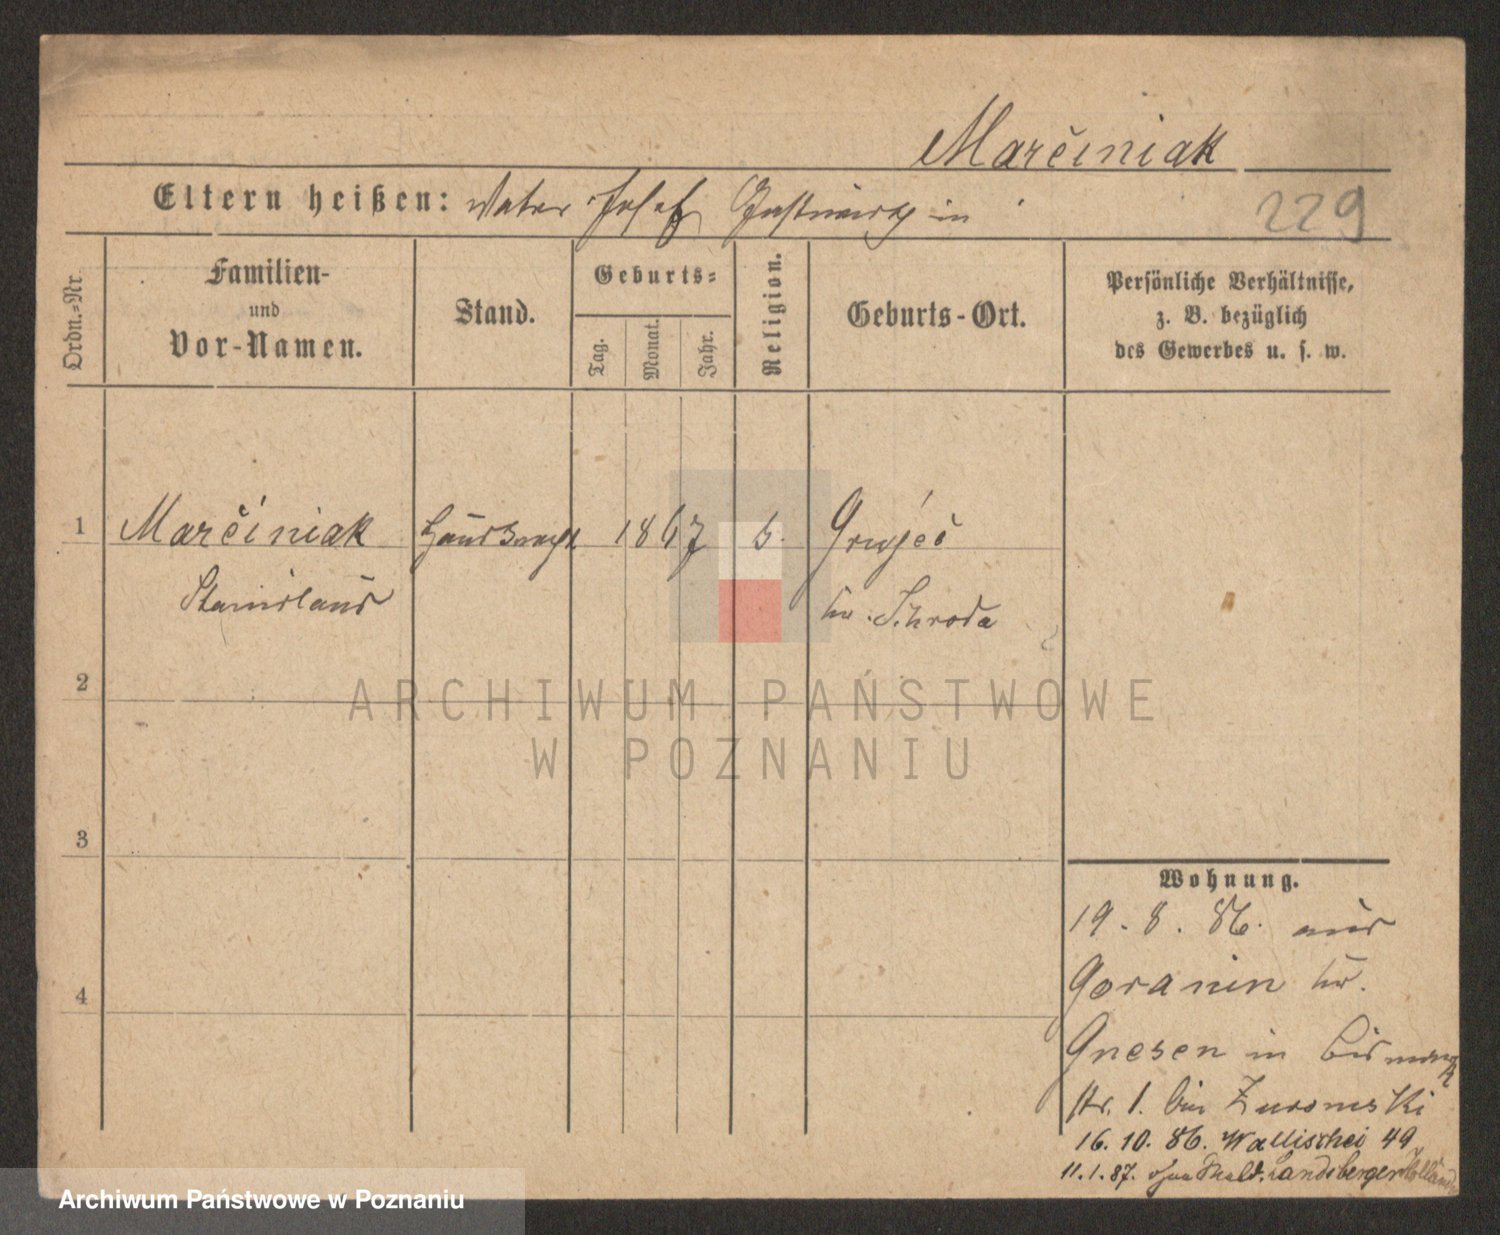 Marčiniak
Eltern heißen: Vater Josef Gastwirth in
229
Ordn.-Nr.
Familien-
und
Vor-Namen.
Stand.
Geburts-
Tag.
Monat.
Jahr.
Religion.
Geburts-Ort.
Persönliche Verhältnisse,
z. B. bezüglich
des Gewerbes u. s. w.
1 Marčiniak Hausknecht 1867 Grujec
Stanislaus Kr. Schroda
2
3
4
Wohnung.
19. 8. 86. aus
Goranin Kr.
Gnesen in Bismark
str. 1. bei Zuromski
16. 10. 86. Wallischei 49
11. 1. 87. ohne Landsberger
ARCHIWUM PAŃSTWOWE
W POZNANIU
Archiwum Państwowe w Poznaniu